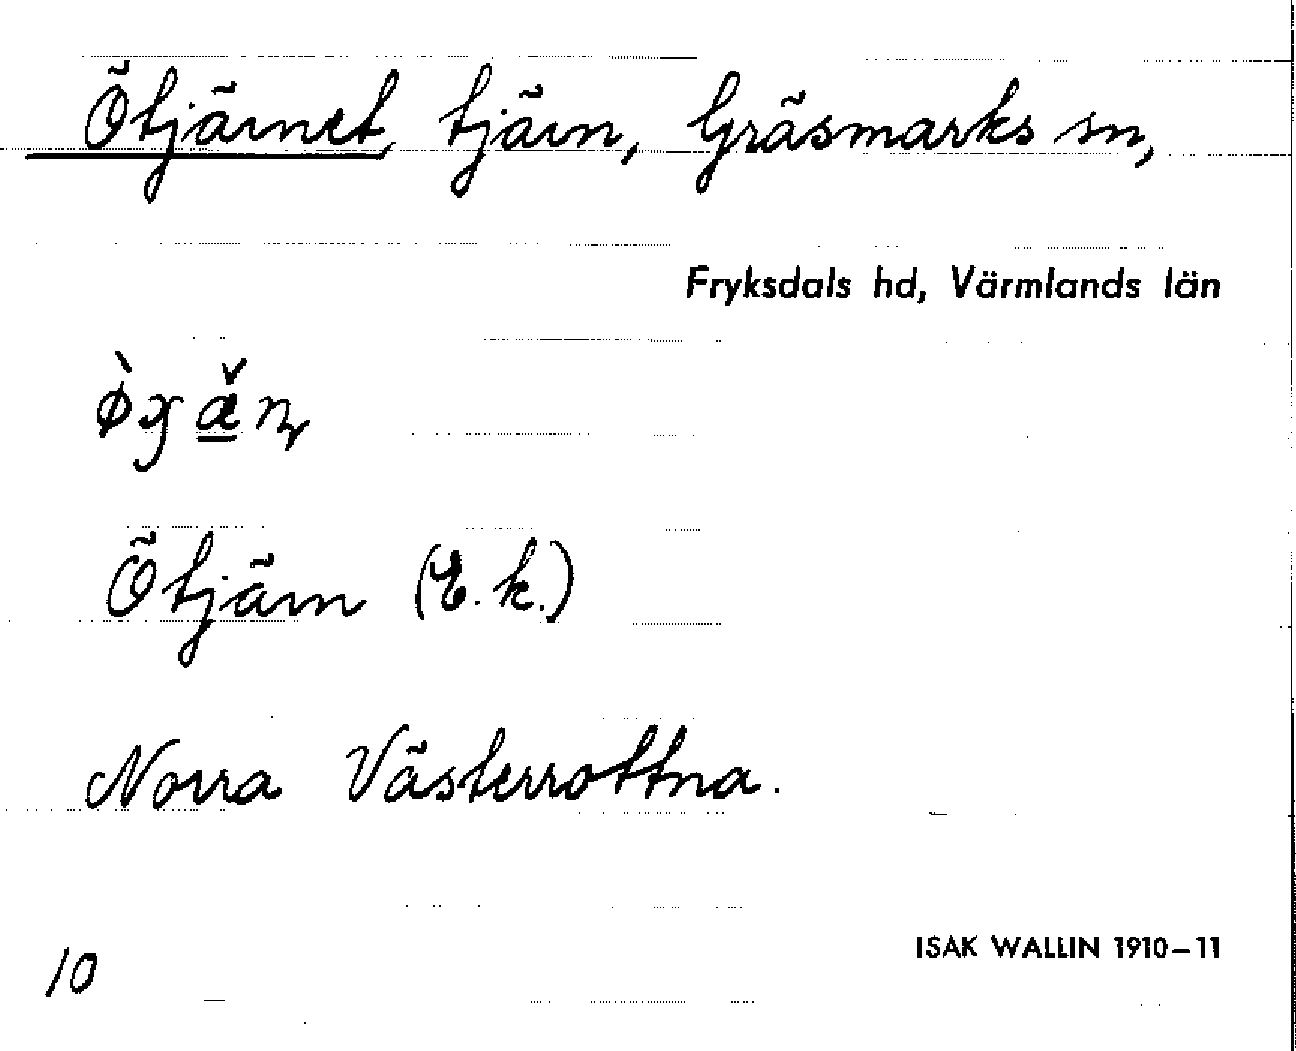 Ötjärnet, tjärn, Gräsmarks sn,
Fryksdals hd, Värmlands län
Ötjärn (E. k.)
Norra Västerrottna.
ISAK WALLIN 1910-11
10